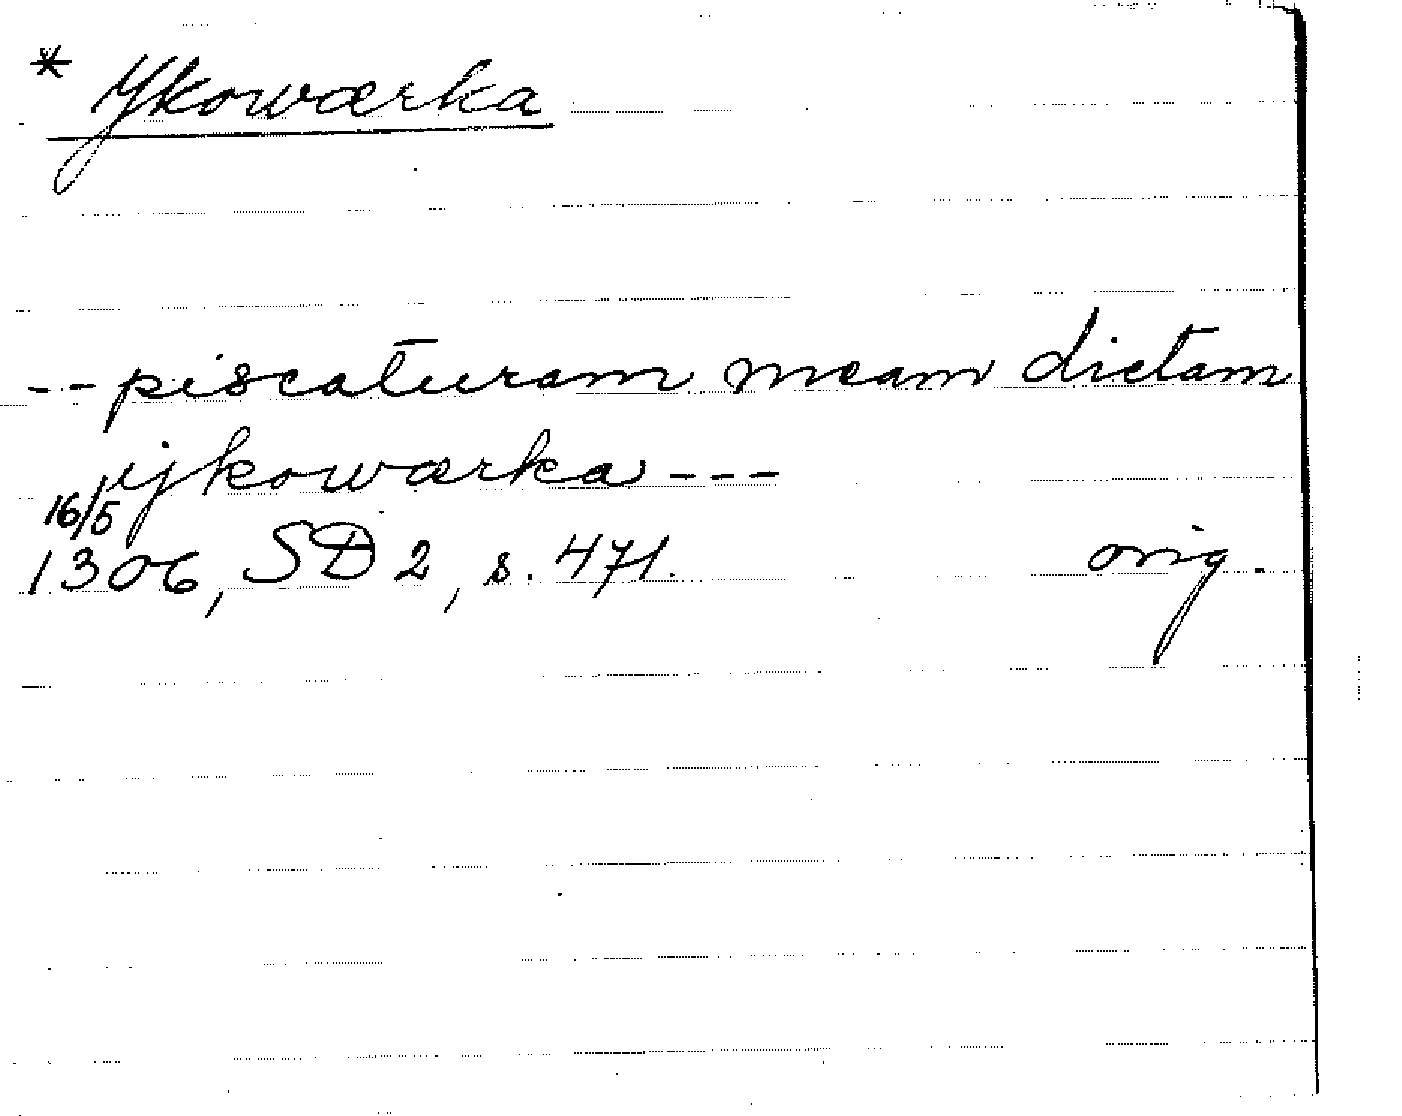 * Ykowærka
-- piscaturam meam dictam
ijkowærka ---
16/5
1306, SD 2, s. 471. orig.